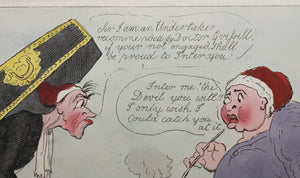 Sir I am an Undertaker
recommended by Doctor
if your not engaged I shall
be proud to Inter you!
Inter me! the
Devil you will!!
I only wish I
Could catch you
at it